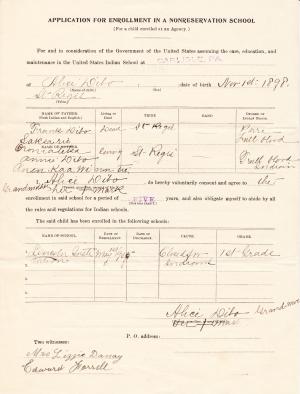 APPLICATION FOR ENROLLMENT IN A NONRESERVATION SCHOOL
(For a child enrolled at an Agency.)
For and in consideration of the Government of the United States assuming the care, education, and
maintenance in the United States Indian School at CARLISLE, PA.
of Alice Dibo date of birth Nov 1st 1898.
St Regis
NAME OF FATHER
Living or Dead
TRIBE
DEGREE OF INDIAN BLOOD
Frank Dibo Dead St Regis
living St-Regis full blood
Annie Dibo Indian
I, Alice Dibo, do hereby voluntarily consent and agree to the
Grandmother
enrollment in said school for a period of FIVE years, and also obligate myself to abide by all
the rules and regulations for Indian schools.
The said child has been enrolled in the following schools:
NAME OF SCHOOL
DATE OF ENROLLMENT
DATE OF DISCHARGE
CAUSE
GRADE
Lincoln Institution 1st Grade
Alice Dibo Grandmother
P. O. address:
Two witnesses:
Mrs Lizzie Danay
Edward Farrell